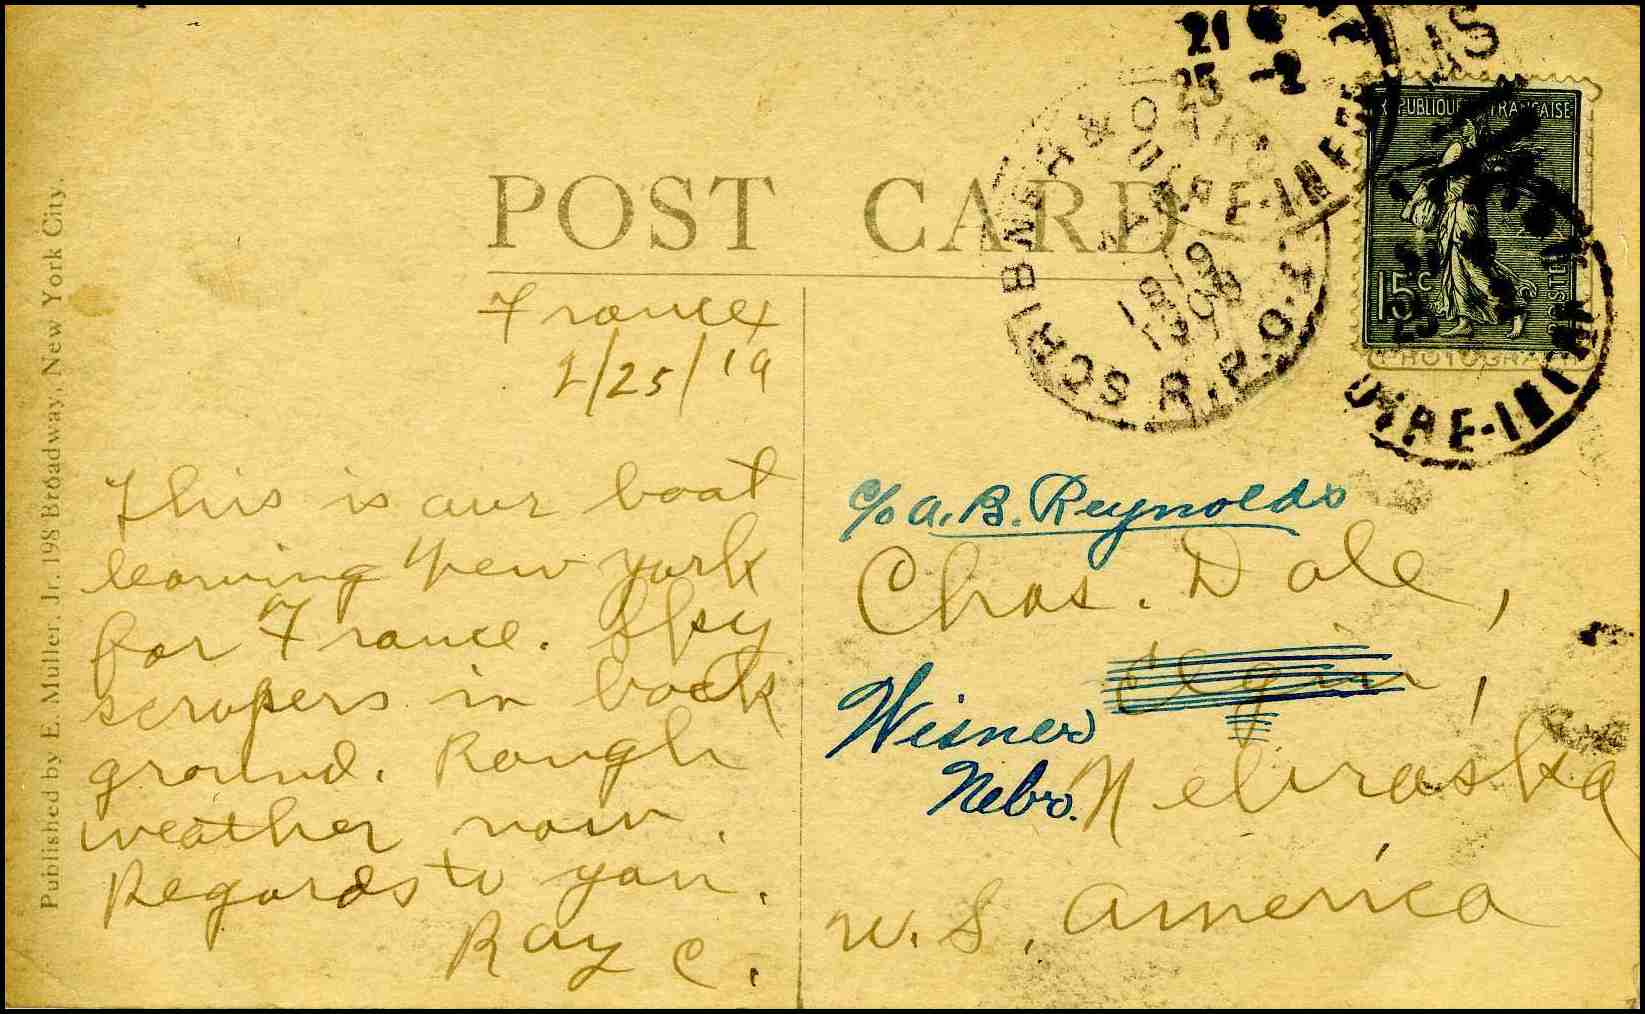 POST CARD
RÉPUBLIQUE FRANÇAISE
15c
POSTES
21
25 -2
SCRIBNER
R.P.O.
1919
LOIRE-INF
LOIRE-INF
Published by E. Muller, Jr. 198 Broadway, New York City.
France
2/25/19
This is our boat
leaving New York
for France. Sky
scrapers in back
ground. Rough
weather now.
Regards to you.
Ray C.
c/o A. B. Reynolds
Chas. Dale,
Elgin,
Wisner
Nebr. Nebraska,
U. S. America